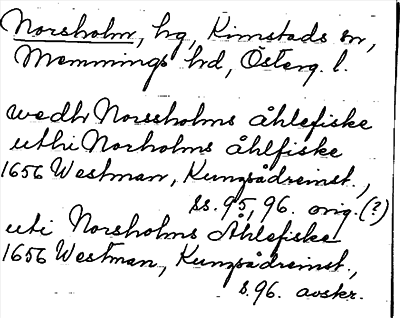 Norsholm, hg, Kimstads sn,
Memmings hd, Österg. l.
wedh Norssholms åhlefiske
uthi Norholms åhlfiske
1656 Westman, Kungsådreinst.,
ss. 95, 96. orig. (?)
uti Norsholms Åhlefiske
1656 Westman, Kungsådreinst.,
s. 96. avskr.